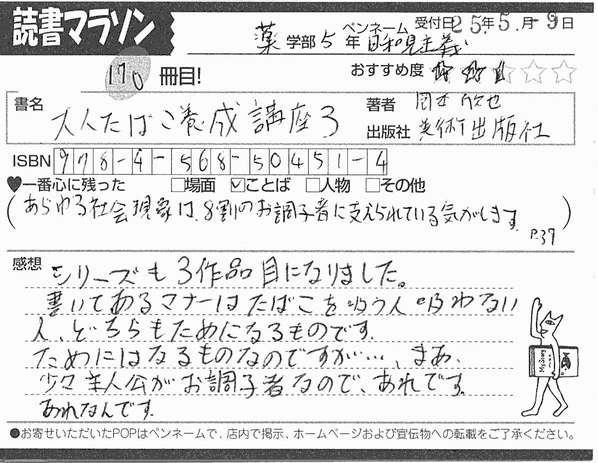 読書マラソン
受付日25年5月-9日
薬学部5年 ペンネーム 日和見主義
170冊目!
おすすめ度 ★★★☆☆☆
書名 大人たばこ養成講座3
著者 岡本欣也
出版社 美術出版社
ISBN 978-4-568-50451-4
♥一番心に残った □場面 ☑ことば □人物 □その他
(あらゆる社会現象は、8割のお調子者に支えられている気がします。 P.37)
感想 シリーズも3作品目になりました。
書いてあるマナーはたばこを吸う人吸わない
人、どちらもためになるものです。
ためにはなるものなのですが…、まあ、
少々主人公がお調子者なので、あれです。
あれなんです。
●お寄せいただいたPOPはペンネームで、店内で掲示、ホームページおよび宣伝物への転載をご了承ください。